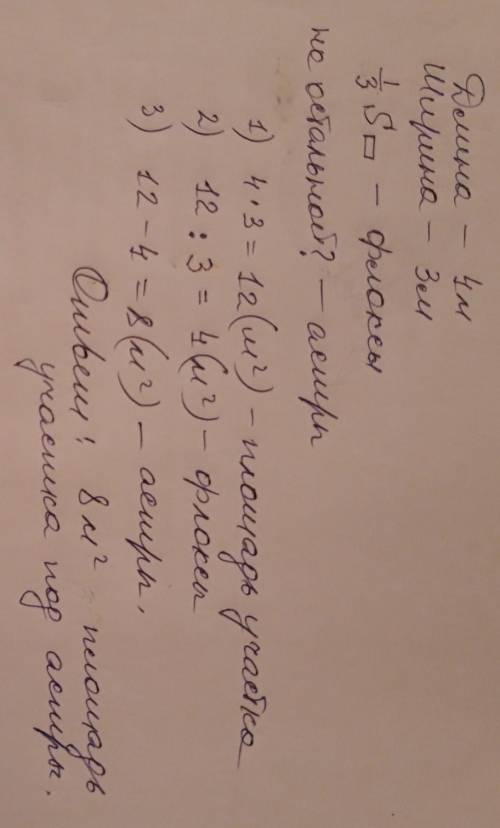 Длина – 4м
Ширина – 3м
1/3 S▭ – флоксы
на остальной? – астры
1) 4·3=12(м²) – площадь участка
2) 12:3=4(м²) – флоксы
3) 12-4=8(м²) – астры.
Ответ: 8м² площадь
участка под астры.